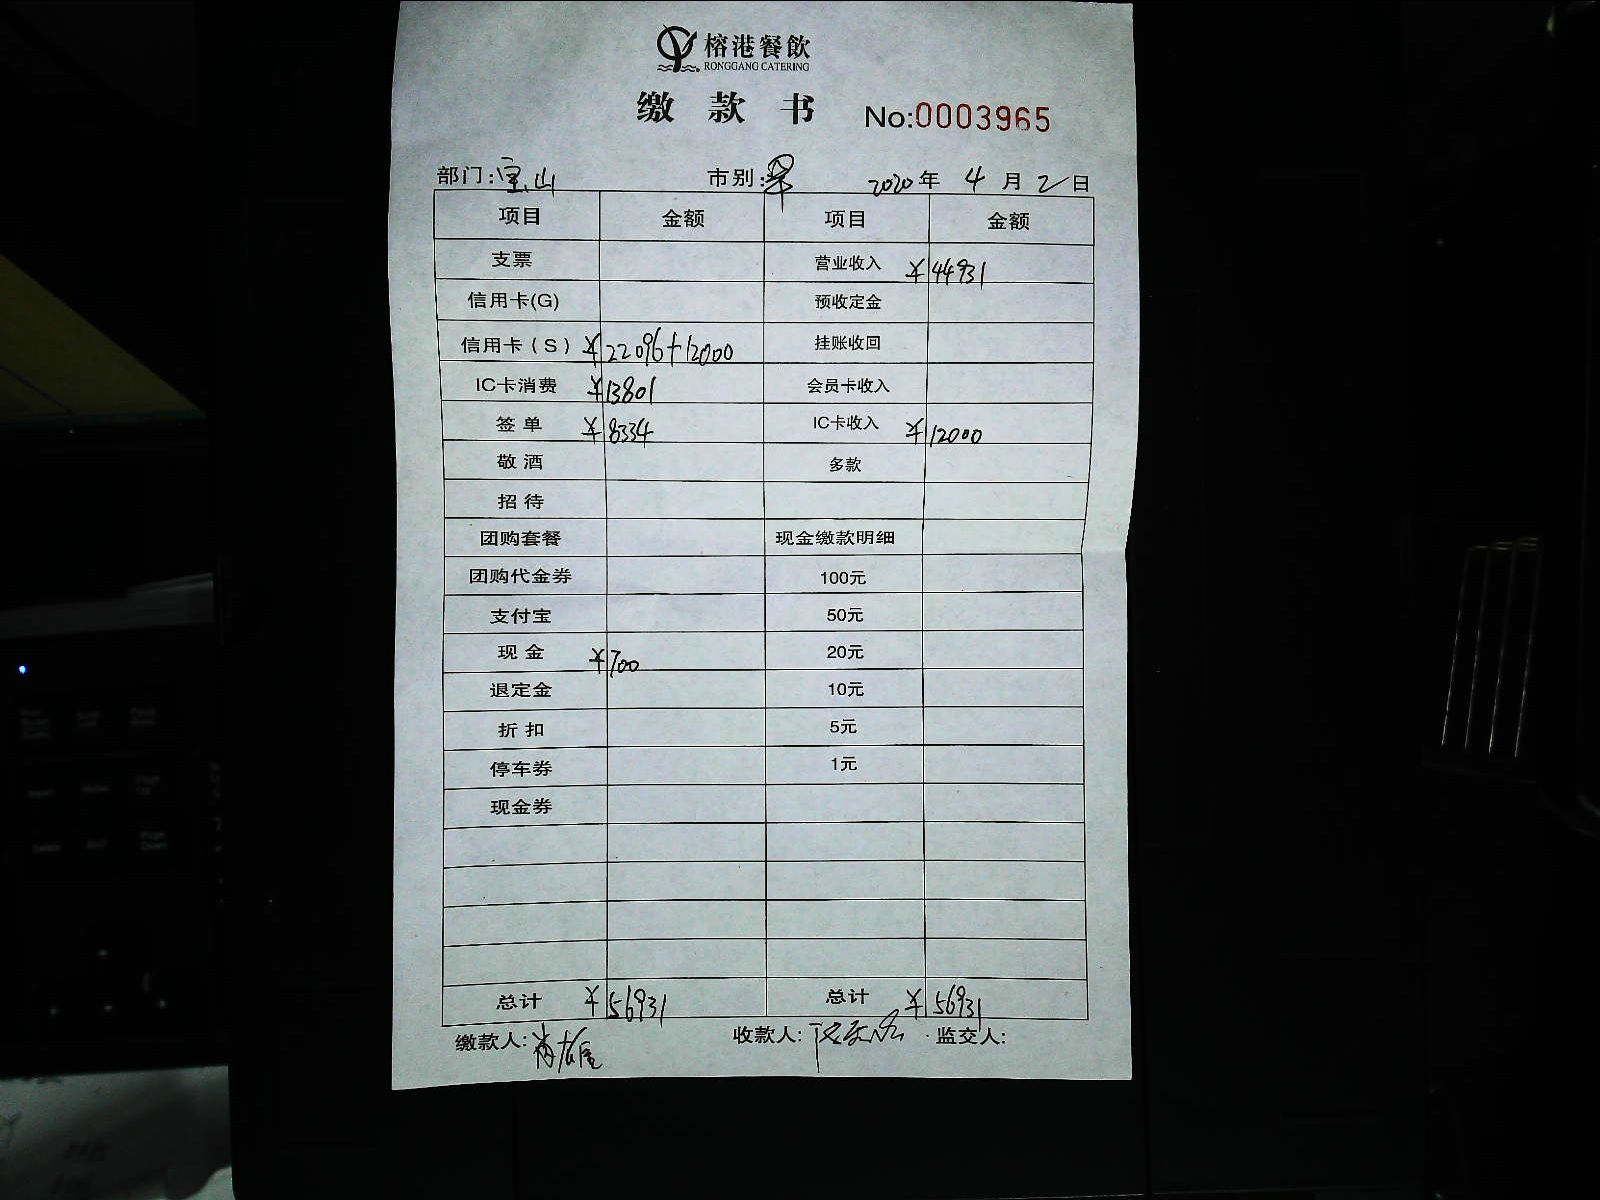 榕港餐飲
RONGGANG CATERING
缴款书 No:0003965
部门:宝山 市别: 2020年4月2日
项目 金额 项目 金额
支票 营业收入 ¥44931
信用卡(G) 预收定金
信用卡(S) ¥22096+12000 挂账收回
IC卡消费 ¥13801 会员卡收入
签单 ¥8334 IC卡收入 ¥12000
敬酒 多款
招待
团购套餐 现金缴款明细
团购代金券 100元
支付宝 50元
现金 ¥700 20元
退定金 10元
折扣 5元
停车券 1元
现金券
总计 ¥56931 总计 ¥56931
缴款人: 收款人: 监交人: